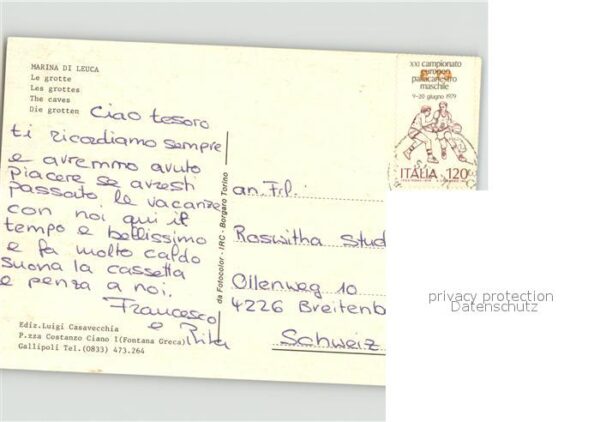 MARINA DI LEUCA
Le grotte
Les grottes
The caves
Die grotten
Ciao tesoro
ti ricordiamo sempre
e avremmo avuto
piacere se avresti
passato le vacanze
con noi qui il
tempo e bellissimo
e fa molto caldo
suona la cassetta
e penza a noi.
Francesco
e Rita
Ediz.Luigi Casavecchia
P.zza Costanzo Ciano 1(Fontana Greca)
Gallipoli Tel.(0833) 473.264
da Fotocolor - IRC - Borgaro Torino
XXI campionato
europeo
pallacanestro
maschile
9-20 giugno 1979
ITALIA 120
an. Frl.
Roswitha Stud
Ollenweg 10
4226 Breitenb
Schweiz
privacy protection
Datenschutz